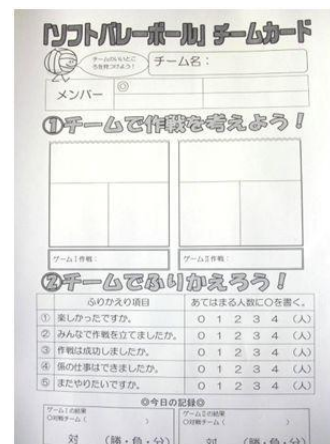 「ソフトバレーボール」チームカード
チームのいいところを見つけよう！
チーム名：
メンバー ◎
①チームで作戦を考えよう！
ゲームⅠ作戦： ゲームⅡ作戦：
②チームでふりかえろう！
ふりかえり項目 あてはまる人数に○を書く。
① 楽しかったですか。 0 1 2 3 4 (人)
② みんなで作戦を立てましたか。 0 1 2 3 4 (人)
③ 作戦は成功しましたか。 0 1 2 3 4 (人)
④ 係の仕事はできましたか。 0 1 2 3 4 (人)
⑤ またやりたいですか。 0 1 2 3 4 (人)
◎今日の記録◎
ゲームⅠの結果 ゲームⅡの結果
○対戦チーム ( ) ○対戦チーム ( )
対 (勝・負・分) 対 (勝・負・分)